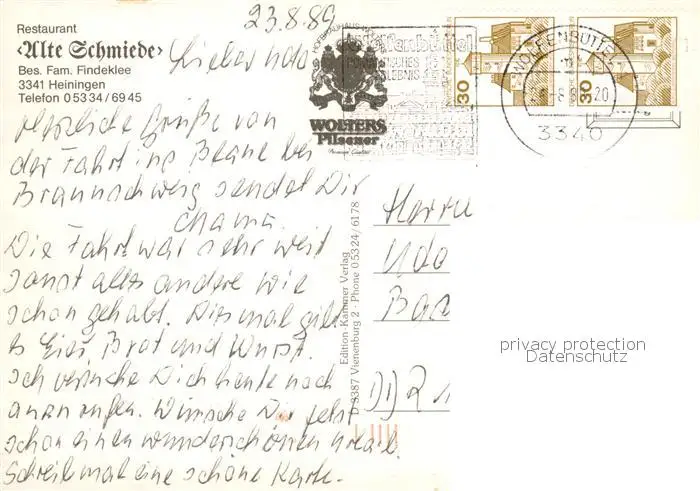 23.8.89
Restaurant
‹Alte Schmiede›
Bes. Fam. Findeklee
3341 Heiningen
Telefon 0 53 34 / 69 45
Lieber Udo
herzliche Grüße von
der Fahrt ins Blaue bei
Braunschweig sendet Dir
Die Fahrt war sehr weit
sonst alles andere wie
schon gehabt. Diesmal gibt
es Eier Brot und Wurst.
Ich versuche Dich heute noch
anzurufen. Wünsche Dir jetzt
schon einen wunderschönen
Schreib mal eine schöne Karte.
HOFBRAUHAUS WOLTERS
WOLTERS
Pilsener
Wolfenbüttel
30
30
WOLFENBÜTTEL
20
3340
Edition-Kammer Verlag
D 3387 Vienenburg 2 · Phone 0 53 24 / 61 78
Herrn
Udo
DDR
privacy protection
Datenschutz